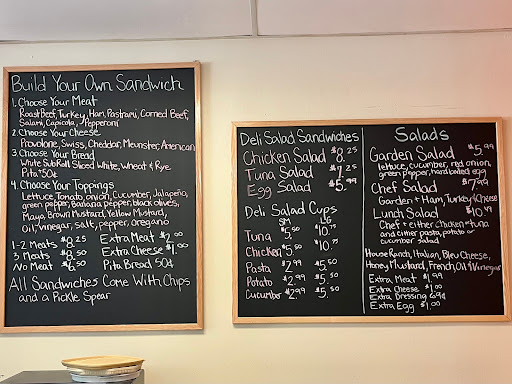 Build Your Own Sandwich
1. Choose Your Meat
Roast Beef, Turkey, Ham, Pastrami, Corned Beef,
Salami, Capicola, Pepperoni
2. Choose Your Cheese
Provolone, Swiss, Cheddar, Meunster, American
3. Choose Your Bread
White Sub Roll Sliced White, Wheat & Rye
Pita 50¢
4. Choose Your Toppings
Lettuce, Tomato, onion, Cucumber, Jalapeño,
green pepper, Banana pepper, black olives,
Mayo, Brown Mustard, Yellow Mustard,
Oil, vinegar, salt, pepper, oregano
1-2 Meats $8.25 Extra Meat $2.00
3 Meats $8.50 Extra Cheese $1.00
No Meat $6.50 Pita Bread 50¢
All Sandwiches Come With Chips
and a Pickle Spear
Deli Salad Sandwiches
Chicken Salad $8.25
Tuna Salad
Egg Salad $5.99
Deli Salad Cups
SM LG
Tuna $5.50 $10.99
Chicken $5.50
Pasta $2.99 $5.50
Potato $2.99 $5.50
Cucumber $2.99 $5.50
Salads
Garden Salad $5.99
lettuce, cucumber, red onion,
green pepper, hard boiled egg
Chef Salad $7.99
Garden + Ham, Turkey & Cheese
Lunch Salad
Chef + either chicken or tuna
and either pasta, potato or
cucumber salad
House Ranch, Italian, Bleu Cheese,
Honey Mustard, French, Oil & Vinegar
Extra Meat $1.99
Extra Cheese $1.00
Extra Dressing 69¢
Extra Egg $1.00